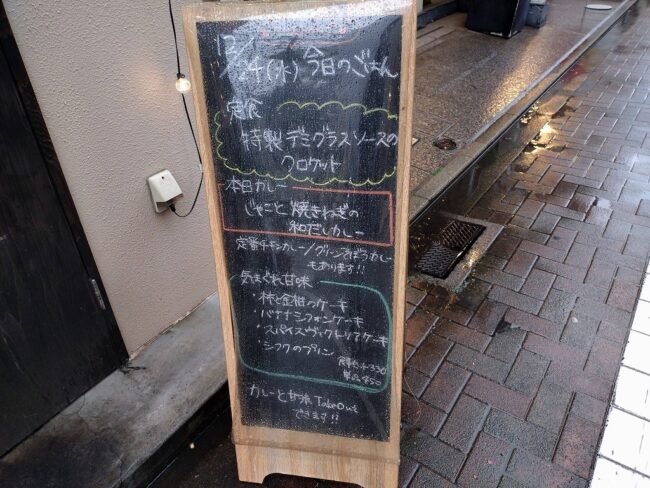 12/24(水) 今日のごはん
定食
特製デミグラスソースの
クロケット
本日カレー
じゃこと焼きねぎの
和だしカレー
定番チキンカレー/グリーンきぼうカレー
もあります!!
気まぐれ甘味
・柿と金柑のケーキ
・バナナシフォンケーキ
・スパイスヴィクトリアケーキ
・シフクのプリン
食事に+350
単品450
カレーと甘味TakeOut
できます!!